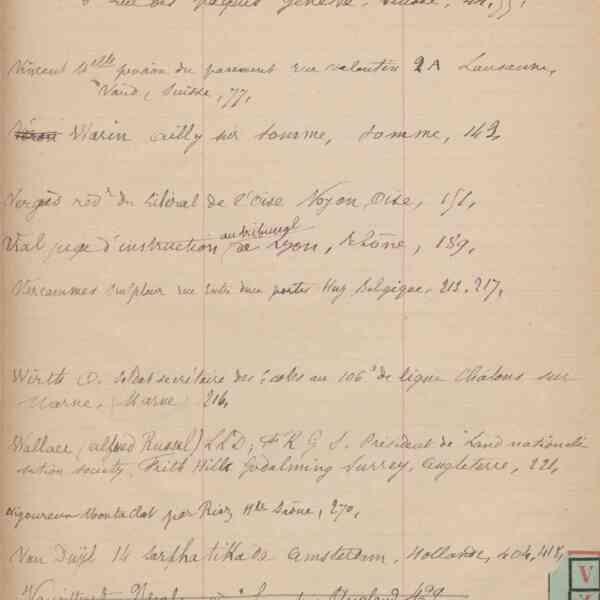 rue des Pâquis Genève, Suisse, 44, 55,
Vincent Melle pension du parement rue valentin 2A Lausanne,
Vaud, Suisse, 77,
Warin ailly sur Somme, Somme, 143,
Vergès redr du Libéral de l'Oise Noyon, Oise, 151,
Vial juge d'instruction au tribunal de Lyon, Rhône, 189,
Vercammes sculpteur rue Entre deux portes Huy Belgique, 213, 217,
Wirth O. soldat secrétaire des Ecoles au 106e de ligne Chalons sur
Marne, (Marne) 216,
Wallace (alfred Russel) LLD; F R G S. President de Land nationali
sation society, Frith Hill Godalming Surrey, Angleterre, 221,
Vigoureux Montaclat par Rioz Hte Saône, 270,
Van Duijl 14 Sarphatikade Amsterdam, Hollande, 404, 418,
429
V